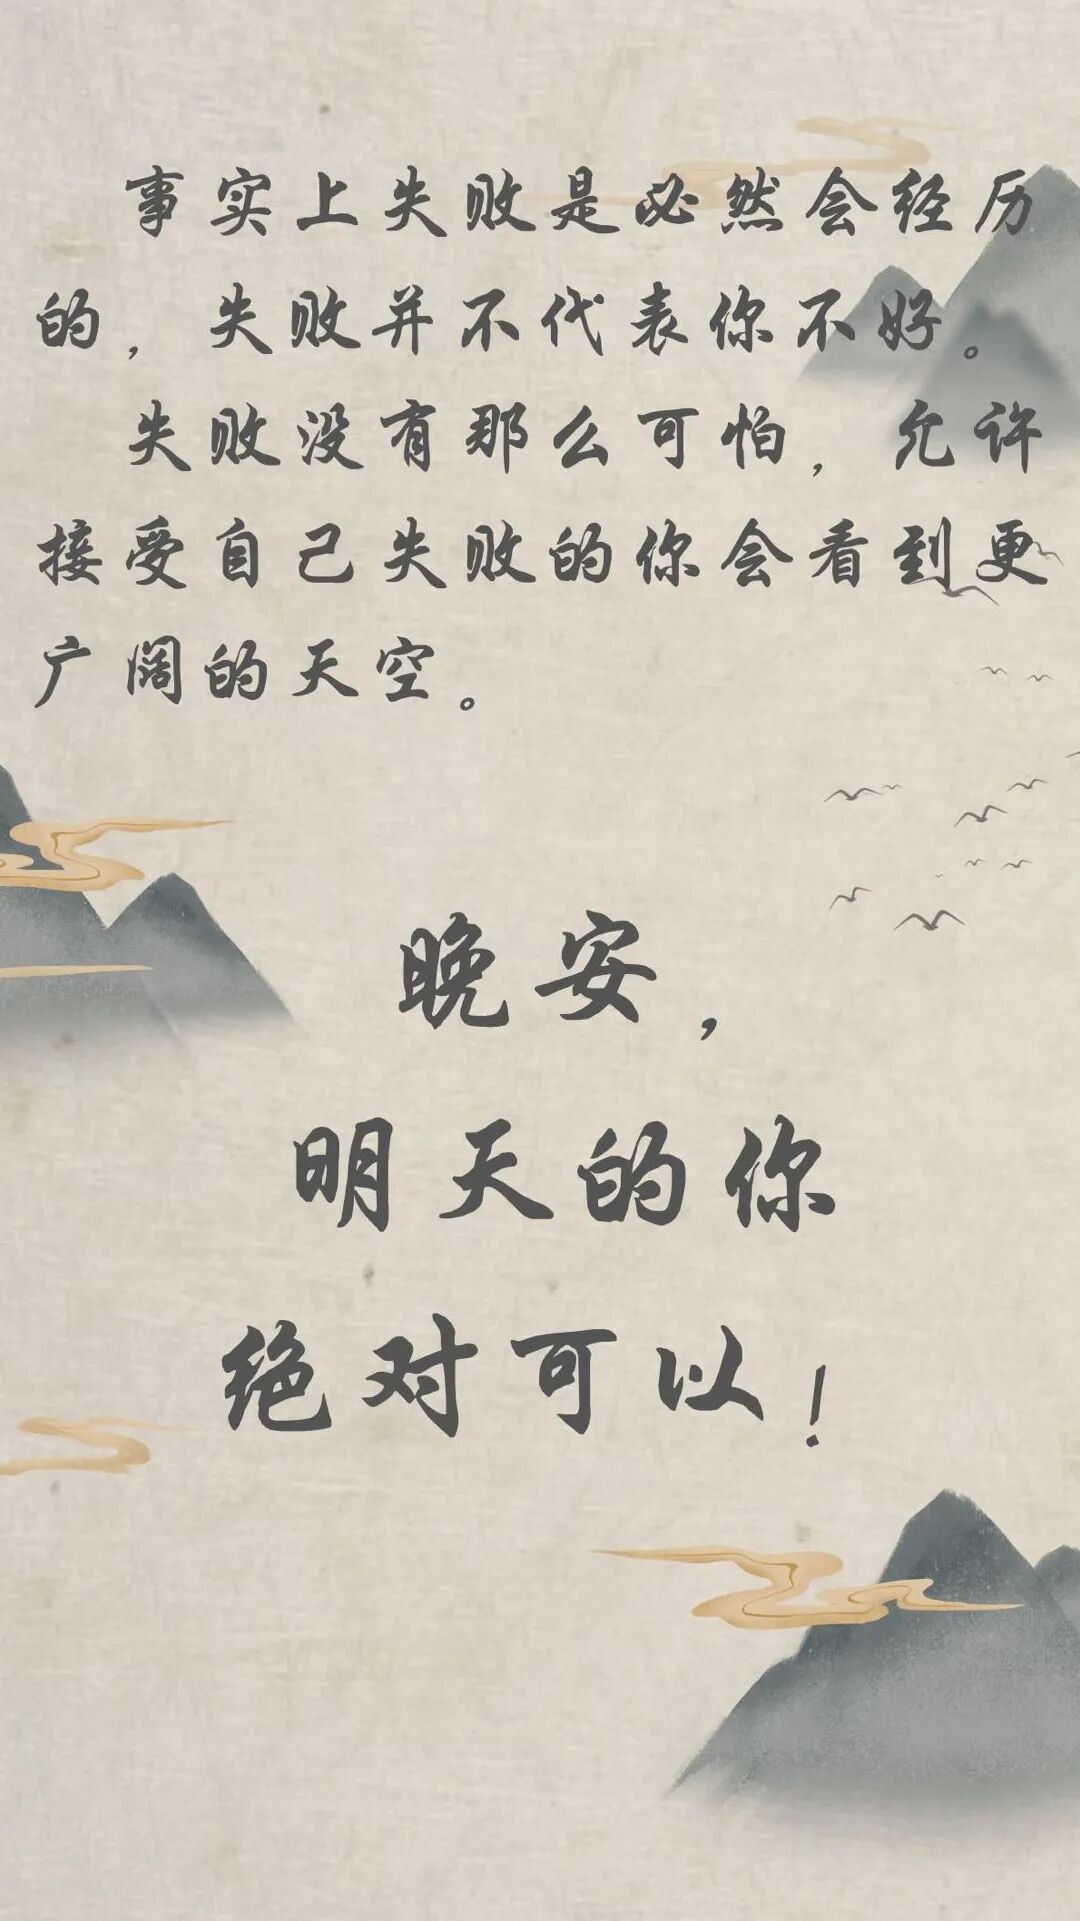 事实上失败是必然会经历
的，失败并不代表你不好。
失败没有那么可怕，允许
接受自己失败的你会看到更
广阔的天空。
晚安，
明天的你
绝对可以！